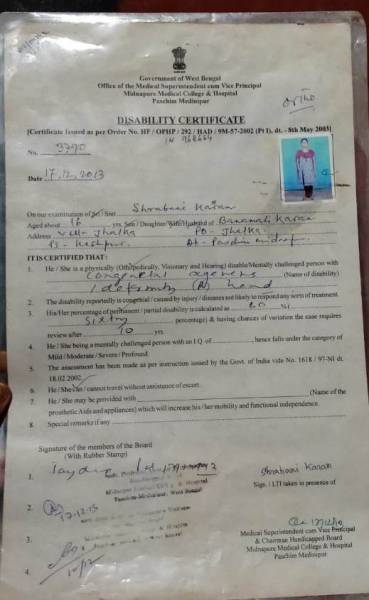 Government of West Bengal
Office of the Medical Superintendent cum Vice Principal
Midnapore Medical College & Hospital
Paschim Medinipur
Ortho
DISABILITY CERTIFICATE
[Certificate Issued as per Order No. HF / OPHP / 292 / HAD / 9M-57-2002 (Pt I), dt. - 8th May 2003]
No. 3790
Date 17.12.2013
On our examination of Sri / Smt Shrabani Karan
Aged about 16 yrs. Son / Daughter/Wife/Husband of Banamali Karan
Address Vill- Jhalka PO- Jhalka
PS- Keshpur Dt- Paschim
IT IS CERTIFIED THAT :
1. He / She is a physically (Othopedically, Visionary and Hearing) disable/Mentally challenged person with
Congenital agenesis (Name of disability)
/ deformity (R) hand
2. The disability reportedly is congenital / caused by injury / diseases not likely to respond any sorts of treatment.
3. His/Her percentage of permanent / partial disability is calculated as 60 %
Sixty percentage) & having chances of variation the case requires
review after 10 yrs.
4. He / She being a mentally challenged person with an I.Q. of hence falls under the category of
Mild / Moderate / Severe / Profound.
5. The assessment has been made as per instruction issued by the Govt. of India vide No. 1618 / 97-NI dt.
18.02.2002
6. He / She can / cannot travel without assistance of escort.
7. He / She may be provided with (Name of the
prosthetic Aids and appliances) which will increase his / her mobility and functional independence.
8. Special remarks if any
Signature of the members of the Board
(With Rubber Stamp)
1.
Midnapore Medical College & Hospital
Paschim Medinipur, West Bengal
Shrabani Karan
Sign. / LTI taken in presence of
2. 17.12.13
3.
4.
Medical Superintendent cum Vice Principal
& Chairman Handicapped Board
Midnapore Medical College & Hospital
Paschim Medinipur